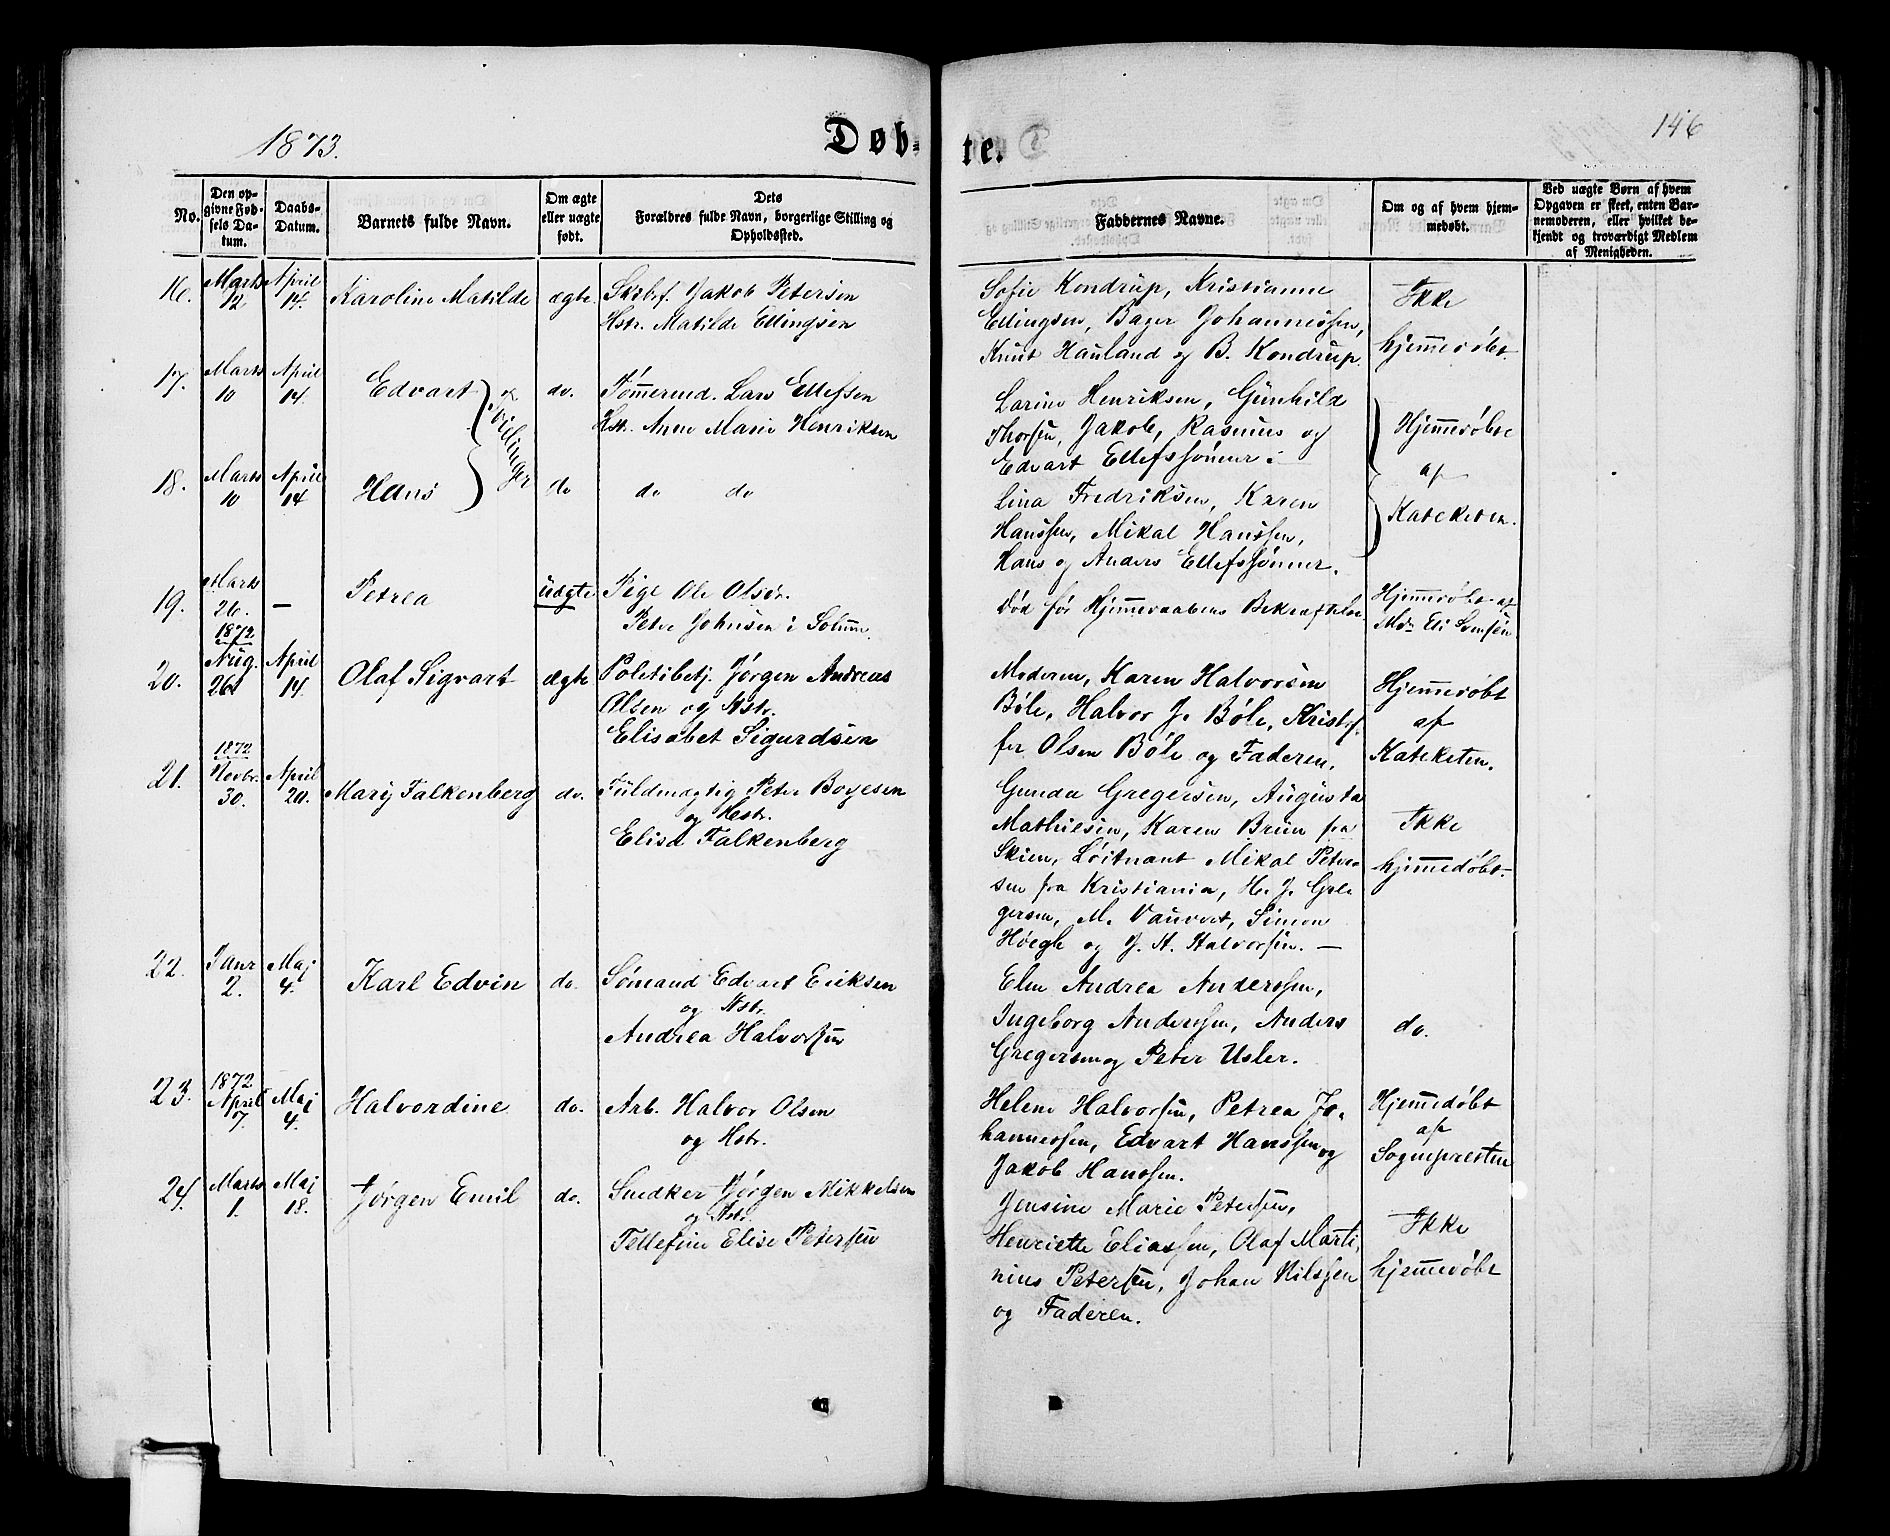 1873.
Døb-
te.
146
No.
Den op-
givne Fød-
sels Da-
tum.
Daabs-
Datum.
Barnets fulde Navn.
Om ægte
eller uægte
født.
Dets
Forældres fulde Navn, borgerlige Stilling og
Opholdssted.
Faddernes Navne.
Om og af hvem hjem-
medøbt.
Ved uægte Børn af hvem
Opgaven er skeet, enten Bar-
nemoderen, eller hvilket be-
kjendt og troværdigt Medlem
af Menigheden.
16.
Marts
12
April
14.
Karoline Matilde
ægte.
Skibsf. Jakob Petersen
Hstr. Matilde Ellingsen
Sofie Kondrup, Kristianne
Ellingsen, Bager Johannessen,
Knut Hauland og B. Kondrup.
Ikke
hjemmedøbt.
17.
Marts
10
April
14.
Edvart
Tvillinger
do.
Tømmermd. Lars Ellefsen
Hstr. Anne Marie Henriksen
Larine Henriksen, Gunhild
Thorsen, Jakob, Rasmus og
Edvart Ellefssønner
Hjemmedøbte
af
Kateketen.
18.
Marts
10
April
14
Hans
do
do do
Lina Fredriksen, Karen
Hanssen, Mikal Hanssen,
Hans og Anders Ellefssønner.
19.
Marts
26.
—
Petrea
uægte
Pige Ole Olsdr.
Peter Johnsen i Solum.
Død før Hjemmedaabens Bekræftelse.
Hjemmedøbt af
20.
1872
Aug.
26
April
14.
Olaf Sigvart
ægte
Politibetj. Jørgen Andreas
Olsen og Hstr.
Elisabet Sigurdsen
Moderen, Karen Halvorsen
Bøle, Halvor J. Bøle, Kristof-
fer Olsen Bøle og Faderen.
Hjemmedøbt
af
Kateketen.
21.
1872
Novbr.
30.
April
20.
Mary Falkenberg
do.
Fuldmægtig Peter Boyesen
og Hstr.
Elisa Falkenberg
Gunda Gregersen, Augusta
Mathiesen, Karen Brun fra
Skien, Løitnant Mikal Peter-
sen fra Kristiania, H. J. Gre-
gersen, M. Vauvert, Simon
Høegh og J. A. Halvorsen. —
Ikke
hjemmedøbt.
22.
Janr
2.
Maj
4.
Karl Edvin
do.
Sømand Edvart Eriksen
og Hstr.
Andrea Halvorsen
Elen Andrea Anderssen,
Ingeborg Anderssen, Anders
Gregersen og Peter Usler.
do.
23.
1872
April
7.
Maj
4.
Halvordine
do.
Arb. Halvor Olsen
og Hstr.
Helene Halvorsen, Petrea Jo-
hannessen, Edvart Hanssen og
Jakob Hanssen.
Hjemmedøbt
af
Sognepresten
24.
Marts
1.
Maj
18.
Jørgen Emil
do.
Snedker Jørgen Mikkelsen
og Hstr.
Tellefine Elise Petersen
Jensine Marie Petersen,
Henriette Eliassen, Olaf Marti-
nius Petersen, Johan Nilssen
og Faderen.
Ikke
hjemmedøbt